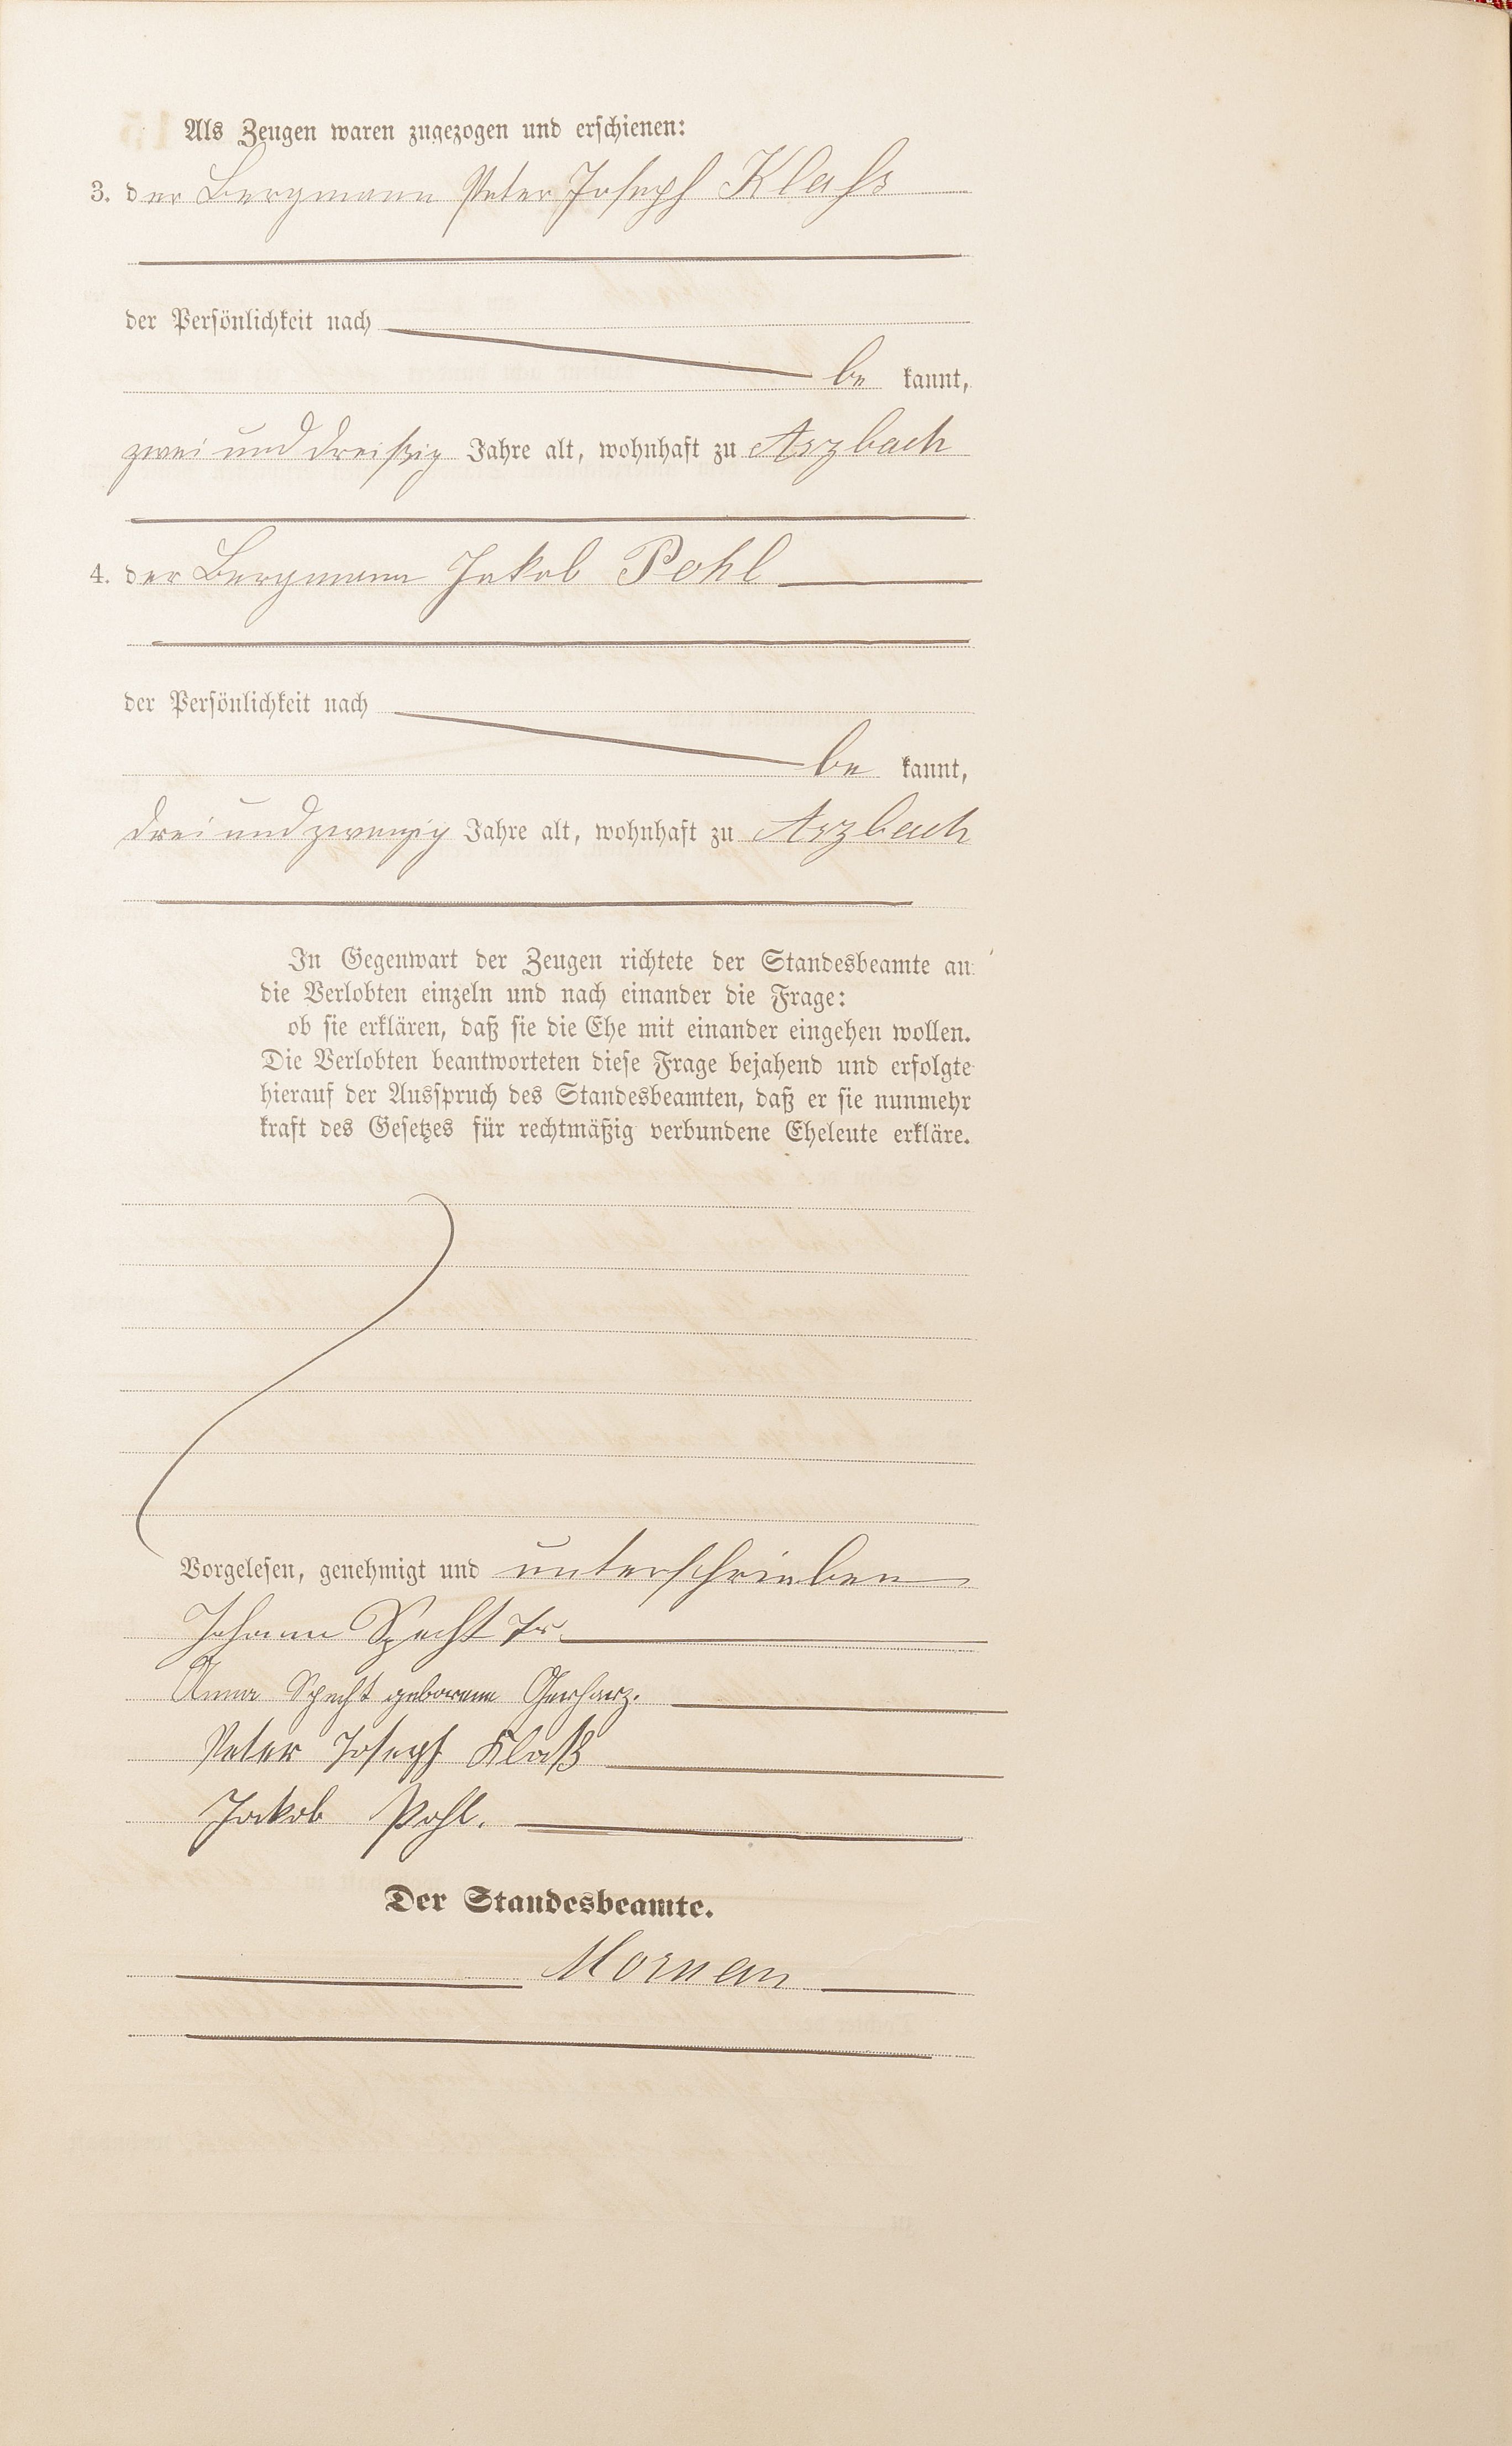 Als Zeugen waren zugezogen und erschienen:
3. der Bergmann Peter Joseph Klaß
der Persönlichkeit nach
be kannt,
zwei und dreißig Jahre alt, wohnhaft zu Arzbach
4. der Bergmann Jakob Pohl
der Persönlichkeit nach
be kannt,
drei und zwanzig Jahre alt, wohnhaft zu Arzbach
In Gegenwart der Zeugen richtete der Standesbeamte an
die Verlobten einzeln und nach einander die Frage:
ob sie erklären, daß sie die Ehe mit einander eingehen wollen.
Die Verlobten beantworteten diese Frage bejahend und erfolgte
hierauf der Ausspruch des Standesbeamten, daß er sie nunmehr
kraft des Gesetzes für rechtmäßig verbundene Eheleute erkläre.
Vorgelesen, genehmigt und unterschrieben
Johann Specht
Anna Specht geborene Gerharz.
Peter Joseph Klaß
Jakob Pohl.
Der Standesbeamte.